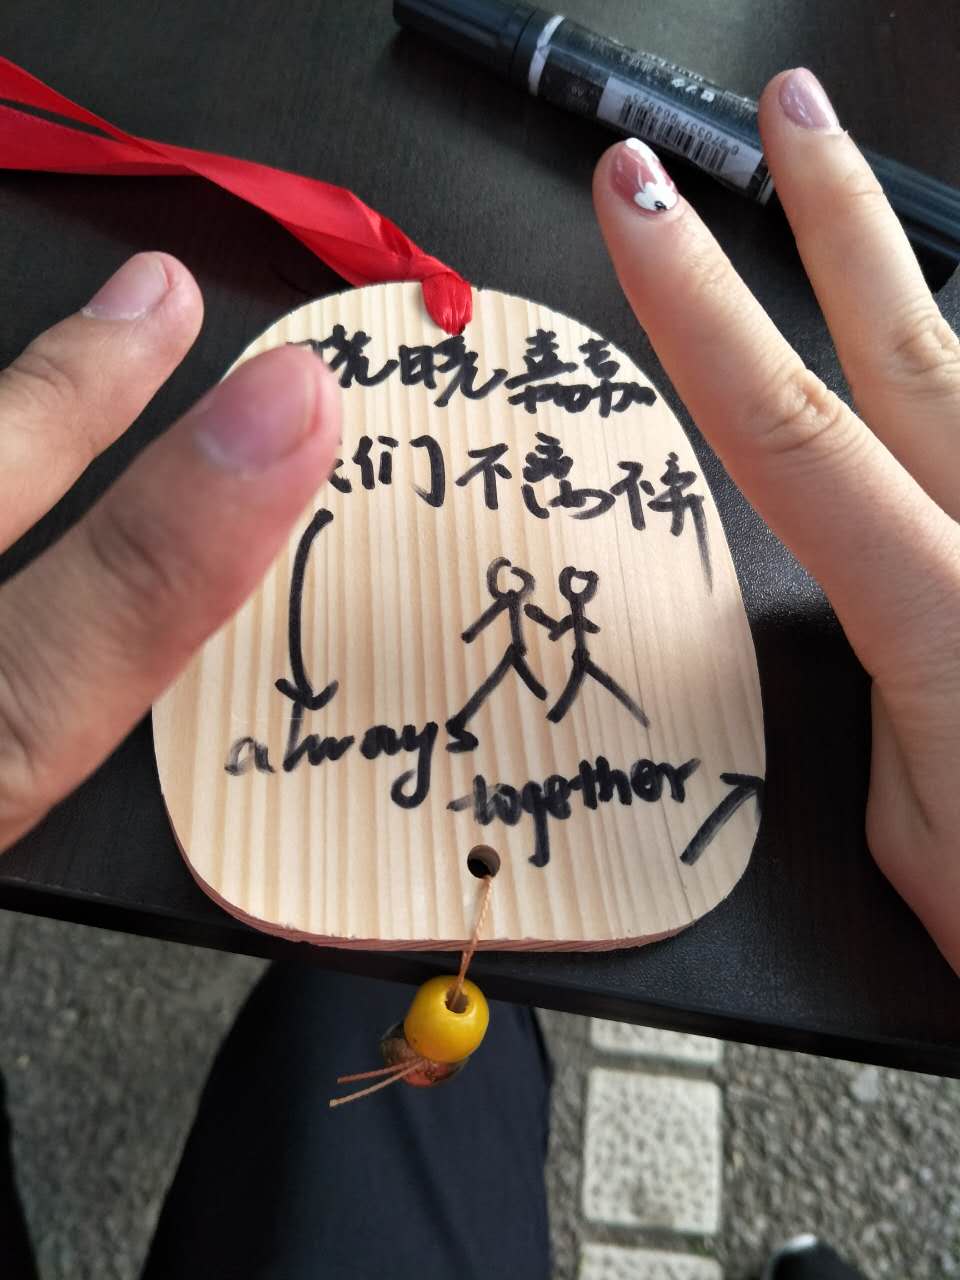 晓晓嘉嘉
我们不离不弃
always
together